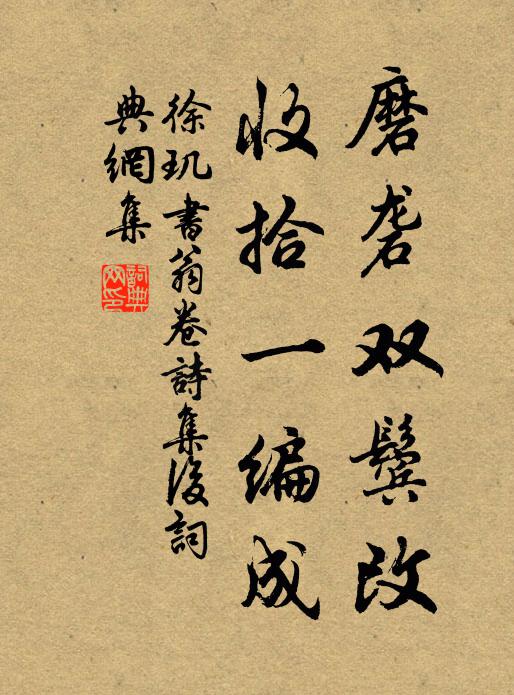 磨砻双鬓改
收拾一编成
徐玑書翁卷詩集後詞
典網集
詞典网印